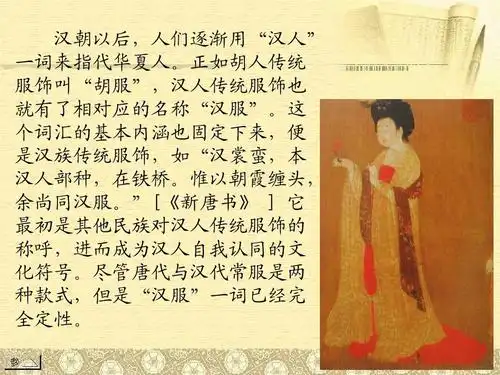 汉朝以后，人们逐渐用“汉人”
一词来指代华夏人。正如胡人传统
服饰叫“胡服”，汉人传统服饰也
就有了相对应的名称“汉服”。这
个词汇的基本内涵也固定下来，便
是汉族传统服饰，如“汉裳蛮，本
汉人部种，在铁桥。惟以朝霞缠头，
余尚同汉服。”[《新唐书》 ] 它
最初是其他民族对汉人传统服饰的
称呼，进而成为汉人自我认同的文
化符号。尽管唐代与汉代常服是两
种款式，但是“汉服”一词已经完
全定性。